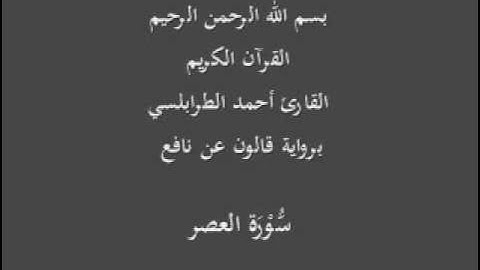 بسم الله الرحمن الرحيم
القرآن الكريم
القارئ أحمد الطرابلسي
برواية قالون عن نافع
سُّوْرَة العصر